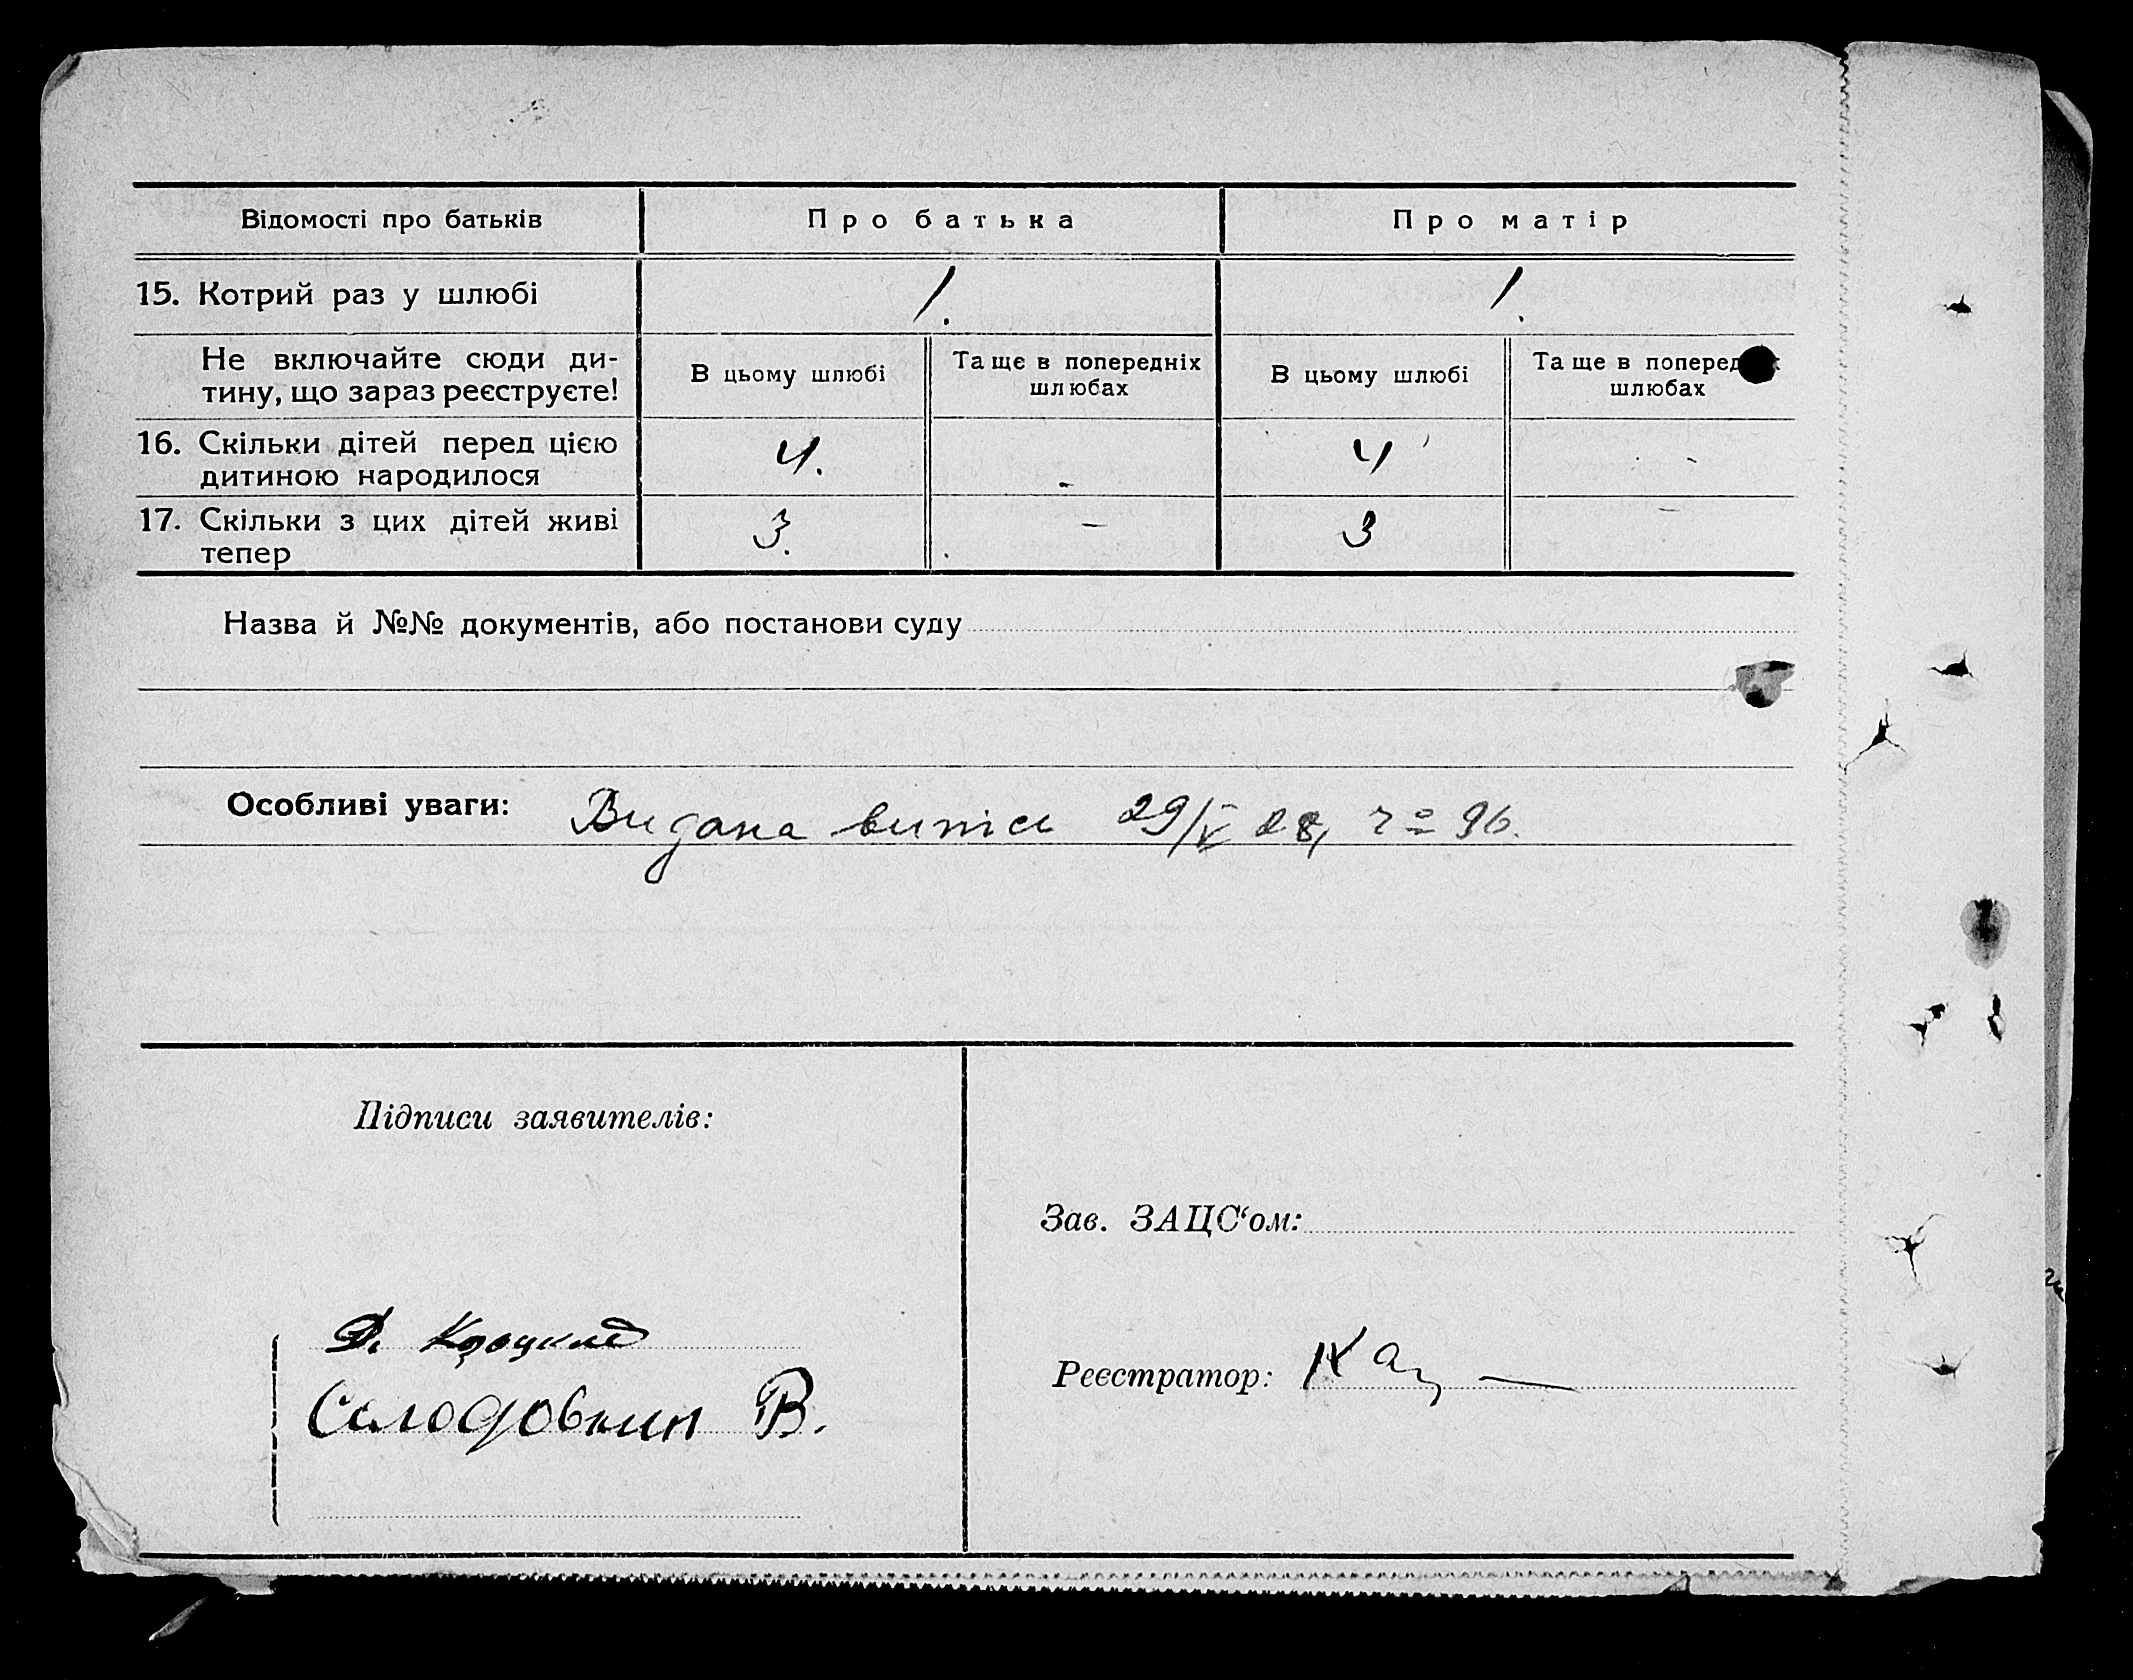 Відомості про батьків Про батька Про матір
15. Котрий раз у шлюбі 1. 1.
Не включайте сюди ди-
тину, що зараз реєструєте!
В цьому шлюбі
Та ще в попередніх
шлюбах
В цьому шлюбі
Та ще в поперед
шлюбах
16. Скільки дітей перед цією
дитиною народилося
4. - 4 -
17. Скільки з цих дітей живі
тепер
3. - 3 -
Назва й №№ документів, або постанови суду
Особливі уваги: Видана витись 29/V 28, 96.
Підписи заявителів:
Зав. ЗАЦС‘ом:
Реєстратор:
В.